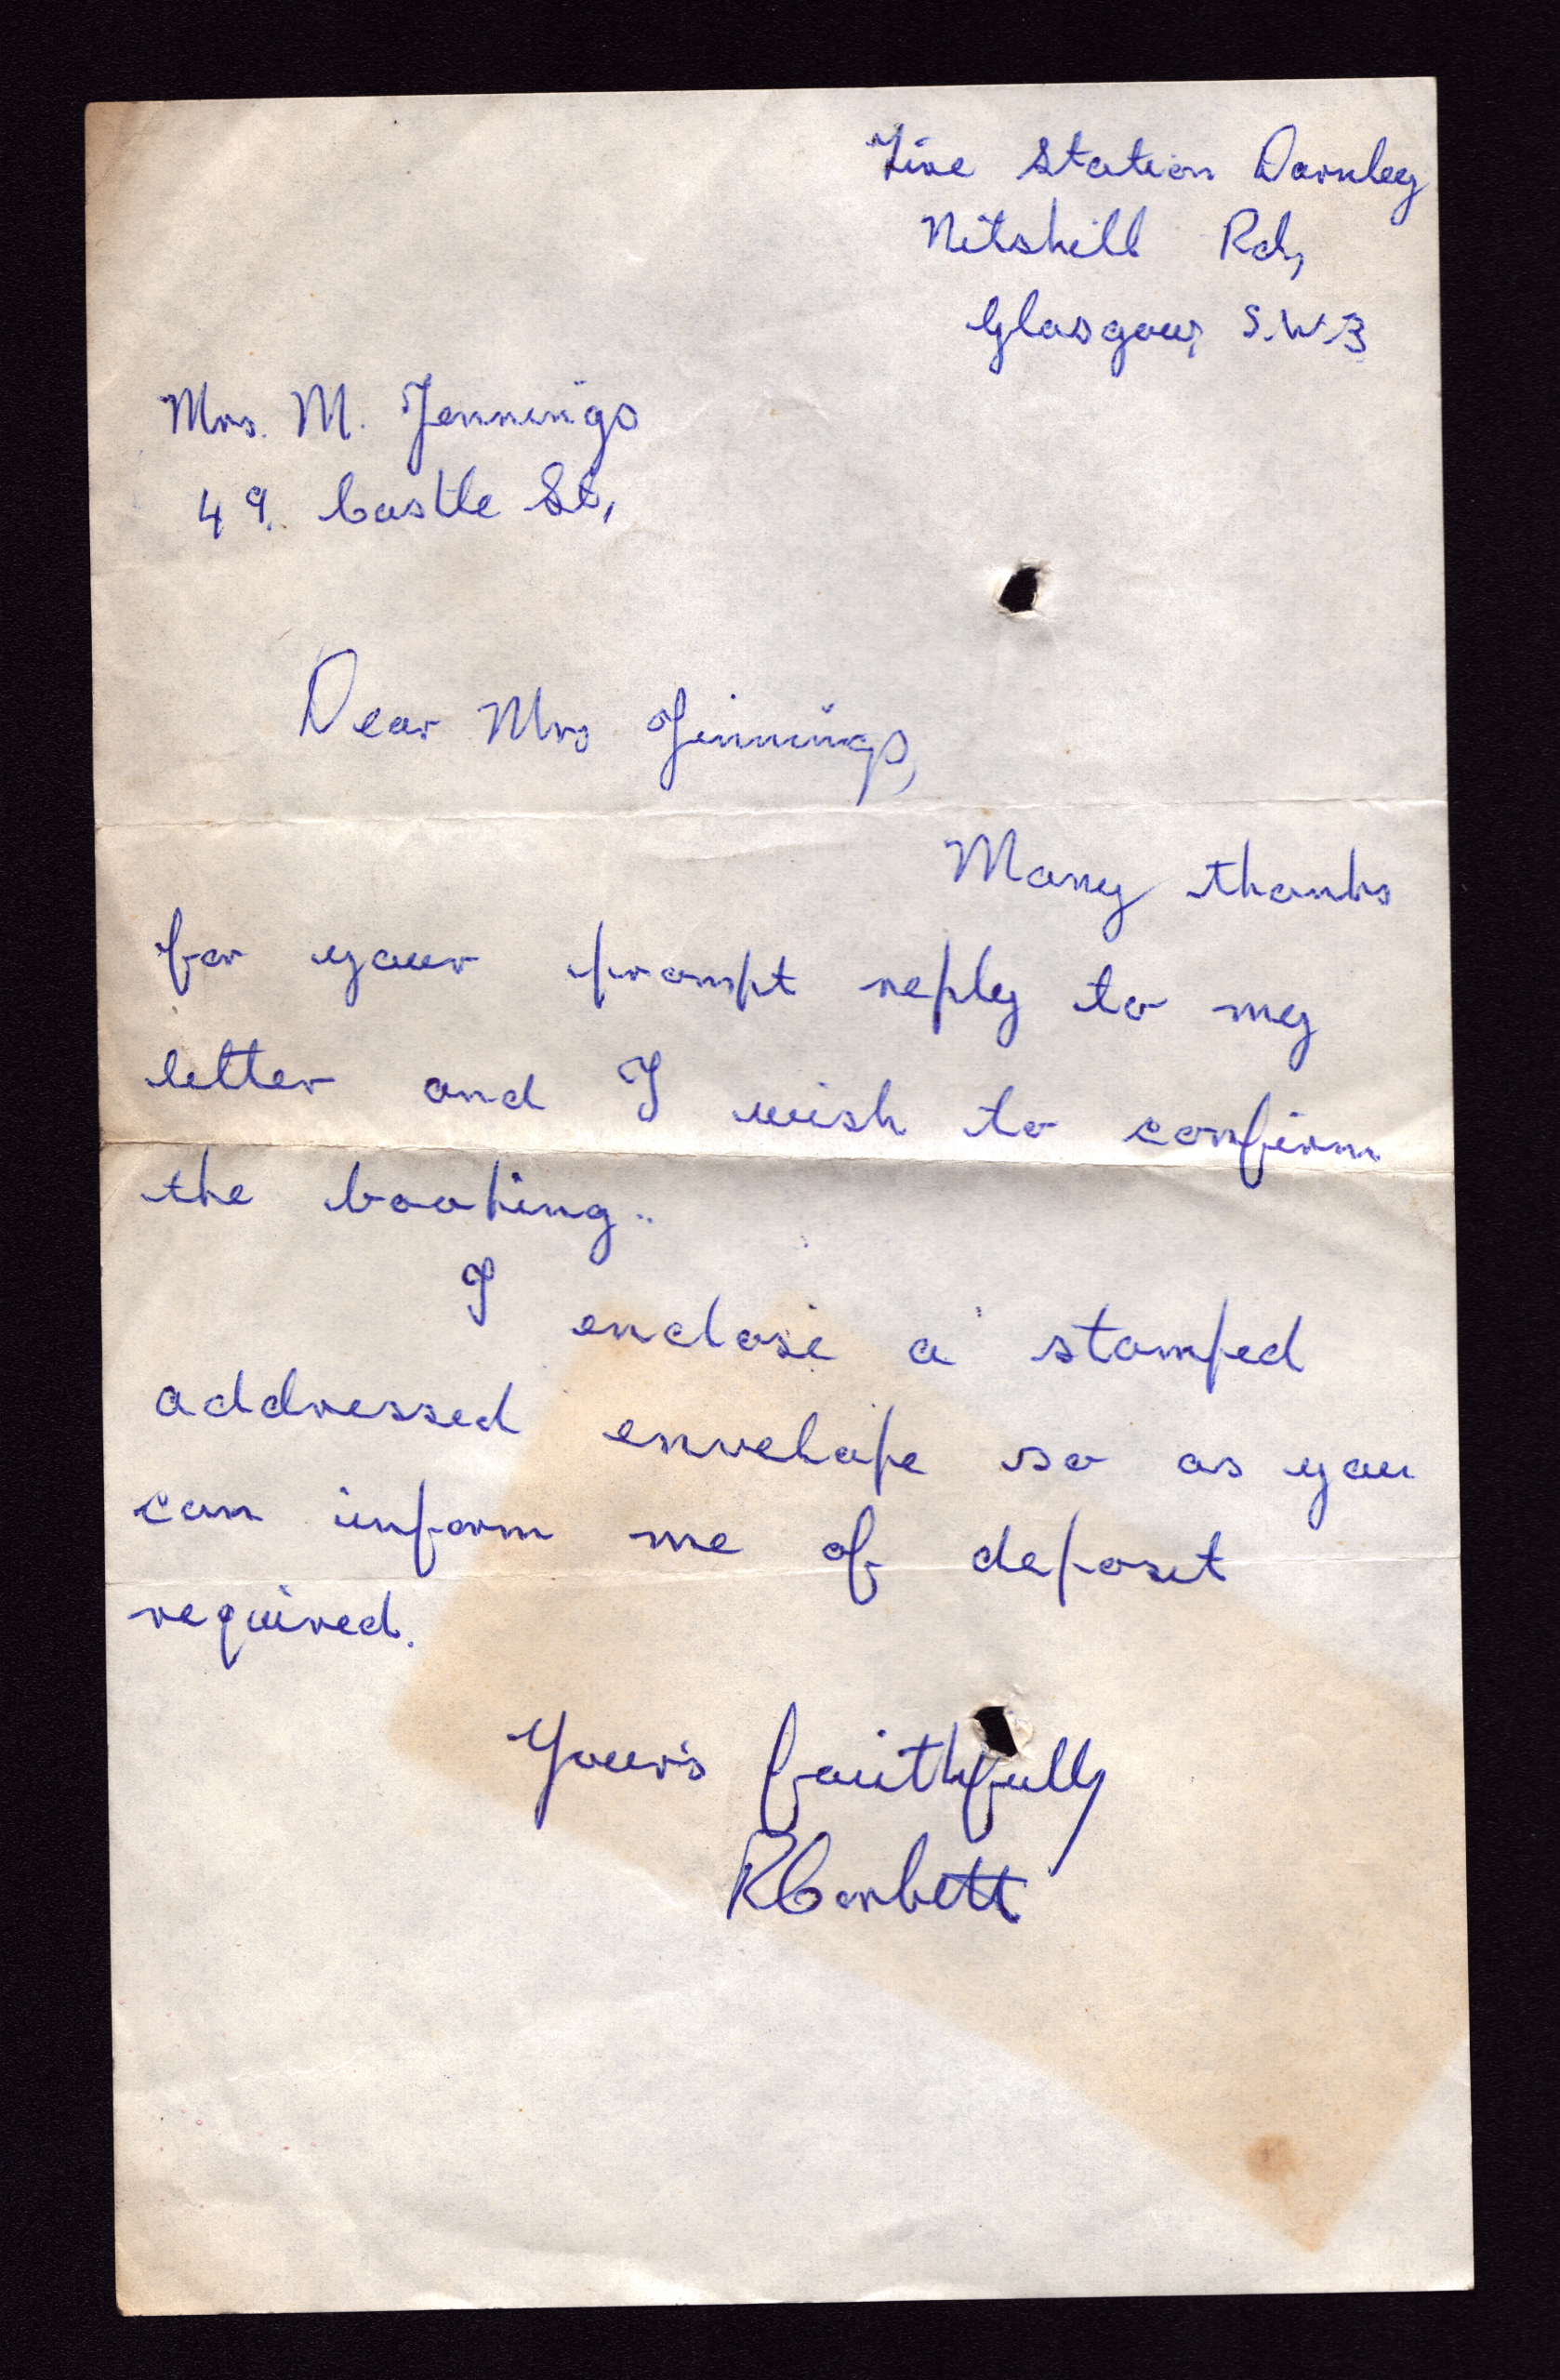 Fire Station Darnley
Nitshill Rd,
Glasgow, S.W.3
Mrs. M. Jennings
49. Castle St,
Dear Mrs Jinnings,
Many thanks
for your prompt reply to my
letter and I wish to confirm
the booking..
I enclose a stamped
addressed envelope so as you
can inform me of deposit
required.
Your's faithfully
R Corbett